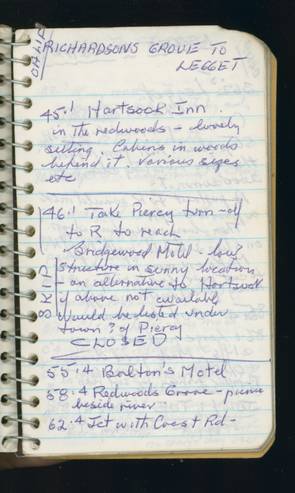 CALIF
RICHARDSONS GROVE TO
LEGGET
45.1 Hartsook Inn.
in the redwoods - lovely
setting. Cabins in woods
behind it. Various sizes
etc
46.1 Take Piercy turn-off
to R to reach
Bridgewood Motel - low?
structure in sunny location
- an alternative to Hartsook
if above not available
would be listed under
town? of Piercy
CLOSED
SKIP
55.4 Bolton's Motel
58.4 Redwoods Grove - picnic
beside river
62.4 Jct with Coast Rd -